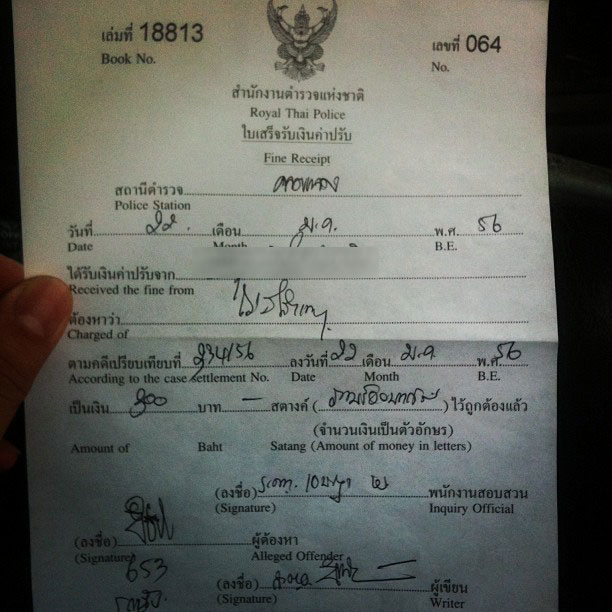 เล่มที่ 18813 เลขที่ 064
Book No. No.
สำนักงานตำรวจแห่งชาติ
Royal Thai Police
ใบเสร็จรับเงินค่าปรับ
Fine Receipt
สถานีตำรวจ
Police Station
วันที่ 22. เดือน ม.ค. พ.ศ. 56
Date Month B.E.
ได้รับเงินค่าปรับจาก
Received the fine from
ต้องหาว่า
Charged of
ตามคดีเปรียบเทียบที่ 234/56 ลงวันที่ 22 เดือน ม.ค. พ.ศ. 56
According to the case settlement No. Date Month B.E.
เป็นเงิน บาท - สตางค์ ( ) ไว้ถูกต้องแล้ว
(จำนวนเงินเป็นตัวอักษร)
Amount of Baht Satang (Amount of money in letters)
(ลงชื่อ) พนักงานสอบสวน
(Signature) Inquiry Official
(ลงชื่อ) ผู้ต้องหา
(Signature) Alleged Offender
653
(ลงชื่อ) ผู้เขียน
(Signature) Writer